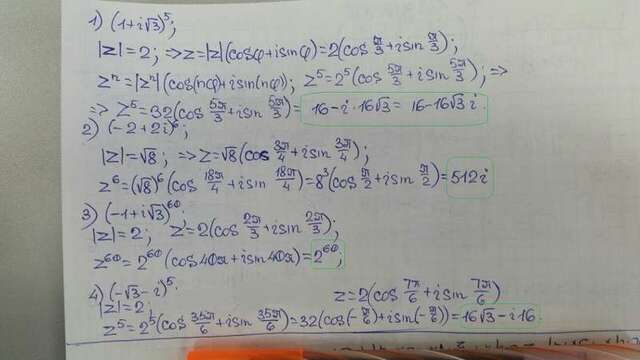 1) (1+i√3)⁵;
|z|=2; ⇒z=|z|(cosφ+isinφ)=2(cos π/3+isin π/3);
zⁿ=|zⁿ|(cos(nφ)+isin(nφ); z⁵=2⁵(cos 5π/3+isin 5π/3); ⇒
⇒ z⁵=32(cos 5π/3+isin 5π/3)= 16-i·16√3= 16-16√3 i.
2) (-2+2i)⁶;
|z|=√8; ⇒z=√8(cos 3π/4+isin 3π/4);
z⁶=(√8)⁶(cos 18π/4+isin 18π/4)=8³(cos π/2+isin π/2)=512i
3) (-1+i√3)⁶⁰;
|z|=2; z=2(cos 2π/3+isin 2π/3);
z⁶⁰=2⁶⁰(cos40π+isin40π)=2⁶⁰;
4) (-√3-i)⁵;
|z|=2; z=2(cos 7π/6+isin 7π/6)
z⁵=2⁵(cos 35π/6+isin 35π/6)=32(cos(-π/6)+isin(-π/6))=16√3-i16.